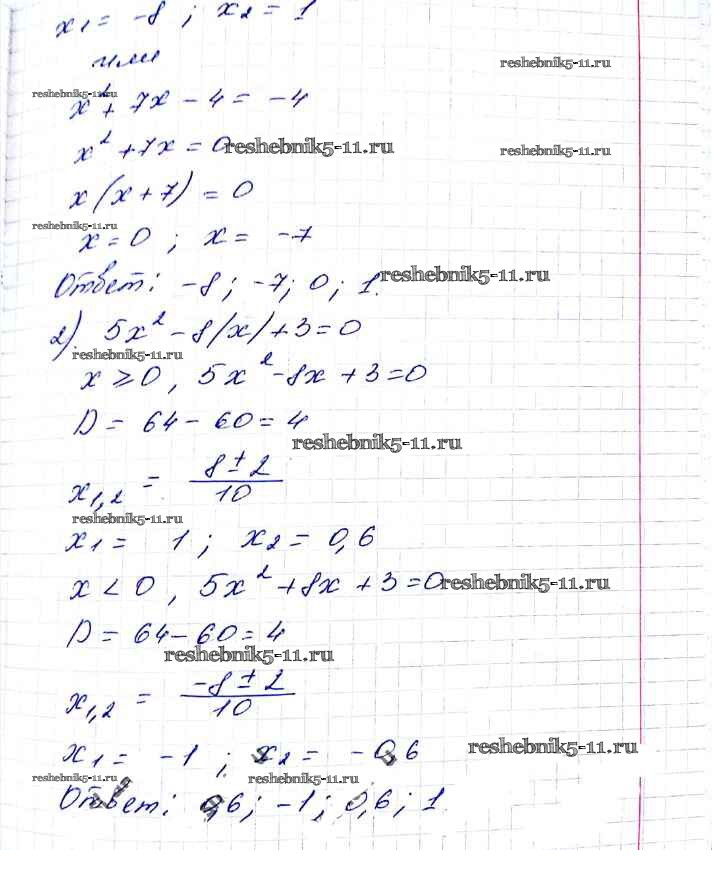 x₁ = -8 ; x₂ = 1
или
reshebnik5-11.ru
reshebnik5-11.ru
x² + 7x - 4 = -4
x² + 7x = 0
reshebnik5-11.ru
reshebnik5-11.ru
x(x+7) = 0
reshebnik5-11.ru
x = 0 ; x = -7
Ответ: -8; -7; 0; 1.
reshebnik5-11.ru
2). 5x² - 8|x| + 3 = 0
reshebnik5-11.ru
x ≥ 0, 5x² - 8x + 3 = 0
D = 64 - 60 = 4
reshebnik5-11.ru
x₁,₂ = (8 ± 2)/10
reshebnik5-11.ru
x₁ = 1 ; x₂ = 0,6
x < 0, 5x² + 8x + 3 = 0
reshebnik5-11.ru
D = 64 - 60 = 4
reshebnik5-11.ru
x₁,₂ = (-8 ± 2)/10
x₁ = -1 ; x₂ = -0,6
reshebnik5-11.ru
reshebnik5-11.ru
reshebnik5-11.ru
Ответ: 0,6; -1; 0,6; 1.